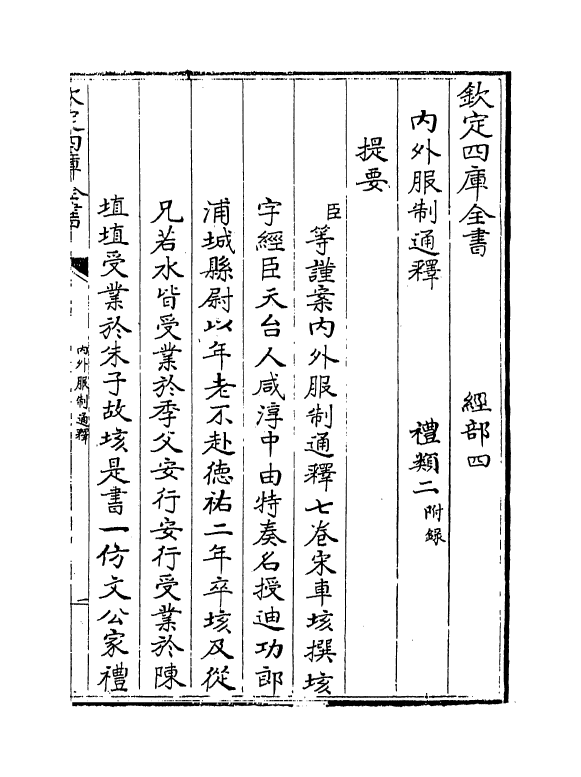 欽定四庫全書　經部四
內外服制通釋　禮類二附錄
提要
臣等謹案內外服制通釋七卷宋車垓撰垓
字經臣天台人咸淳中由特奏名授迪功郎
浦城縣尉以年老不赴德祐二年卒垓及從
兄若水皆受業於季父安行安行受業於陳
埴埴受業於朱子故垓是書一仿文公家禮
欽定四庫全書
內外服制通釋
一